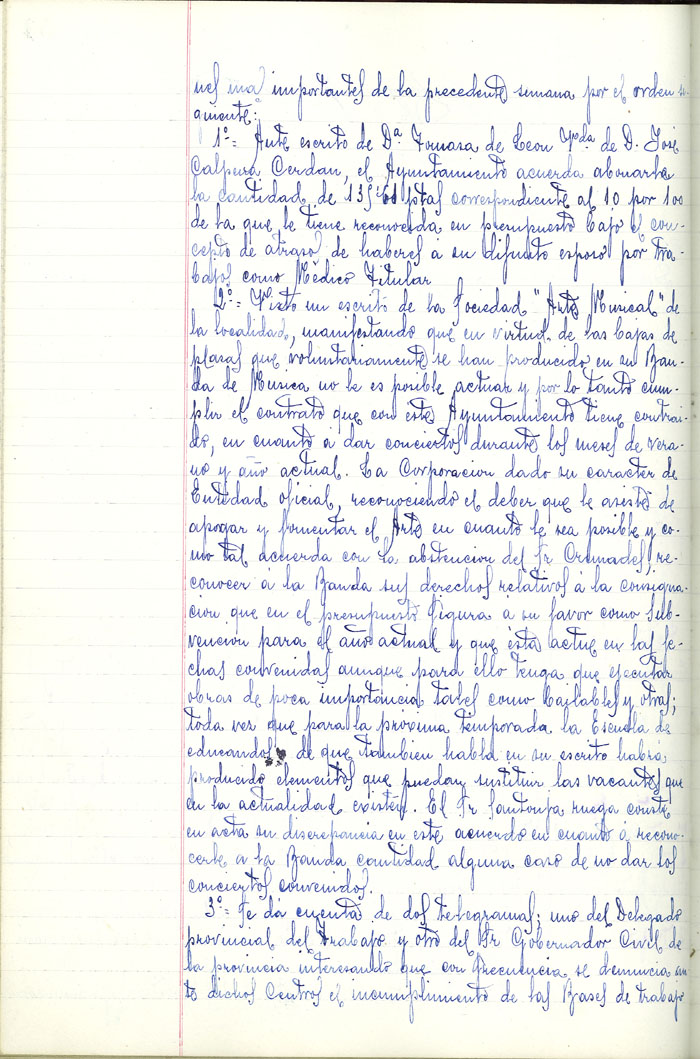 nes mas importantes de la precedente semana por el orden si-
guiente:
1º= Ante escrito de Dª Tomasa de Leon Vda de D. José
Calpena Cerdan, el Ayuntamiento acuerda abonarle
la cantidad de ptas correspondiente al 10 por 100
de la que le tiene reconocida en presupuesto bajo el con-
cepto de atrasos de haberes a su difunto esposo por tra-
bajos como Médico Titular
2º= Visto un escrito de la Sociedad "Arte Musical" de
la localidad, manifestando que en virtud de las bajas de
plazas que voluntariamente se han producido en su Ban-
da de Musica no le es posible actuar y por lo tanto cum-
plir el contrato que con este Ayuntamiento tiene contrai-
do, en cuanto á dar conciertos durante los meses de vera-
no y año actual. La Corporacion dado su caracter de
Entidad oficial, reconociendo el deber que le asiste de
apogar y fomentar el Arte en cuanto le sea posible y co-
mo tal acuerda con la abstencion del Sr Cremades, re-
conocer á la Banda sus derechos relativos á la consigna-
cion que en el presupuesto figura a su favor como Sub-
vencion para el año actual y que ésta actue en las fe-
chas convenidas aunque para ello tenga que ejecutar
obras de poca importancia tales como bailables y otras;
toda vez que para la proxima temporada la Escuela de
educandos de que tambien habla en su escrito habrá
producido elementos que puedan sustituir las vacantes que
en la actualidad existen. El Sr Santonja ruega conste
en acta su discrepancia en este acuerdo en cuanto á recono-
cerle a la Banda cantidad alguna caso de no dar los
conciertos convenidos.
3º= Se dá cuenta de dos telegramas; uno del Delegado
provincial del Trabajo y otro del Sr Gobernador Civil de
la provincia interesando que con frecuencia se denuncia an-
te dichos Centros el incumplimiento de las Bases de trabajo